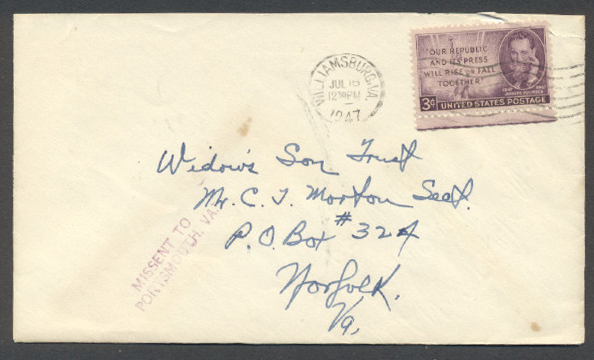 WILLIAMSBURG, VA.
JUL 16
12 30 PM
1947
"OUR REPUBLIC
AND ITS PRESS
WILL RISE OR FALL
TOGETHER"
JOSEPH PULITZER
3¢ UNITED STATES POSTAGE
Widow's Son Trust
Mr. C. T. Morton Sect.
P.O. Box #324
Norfolk.
Va,
MISSENT TO
PORTSMOUTH, VA.